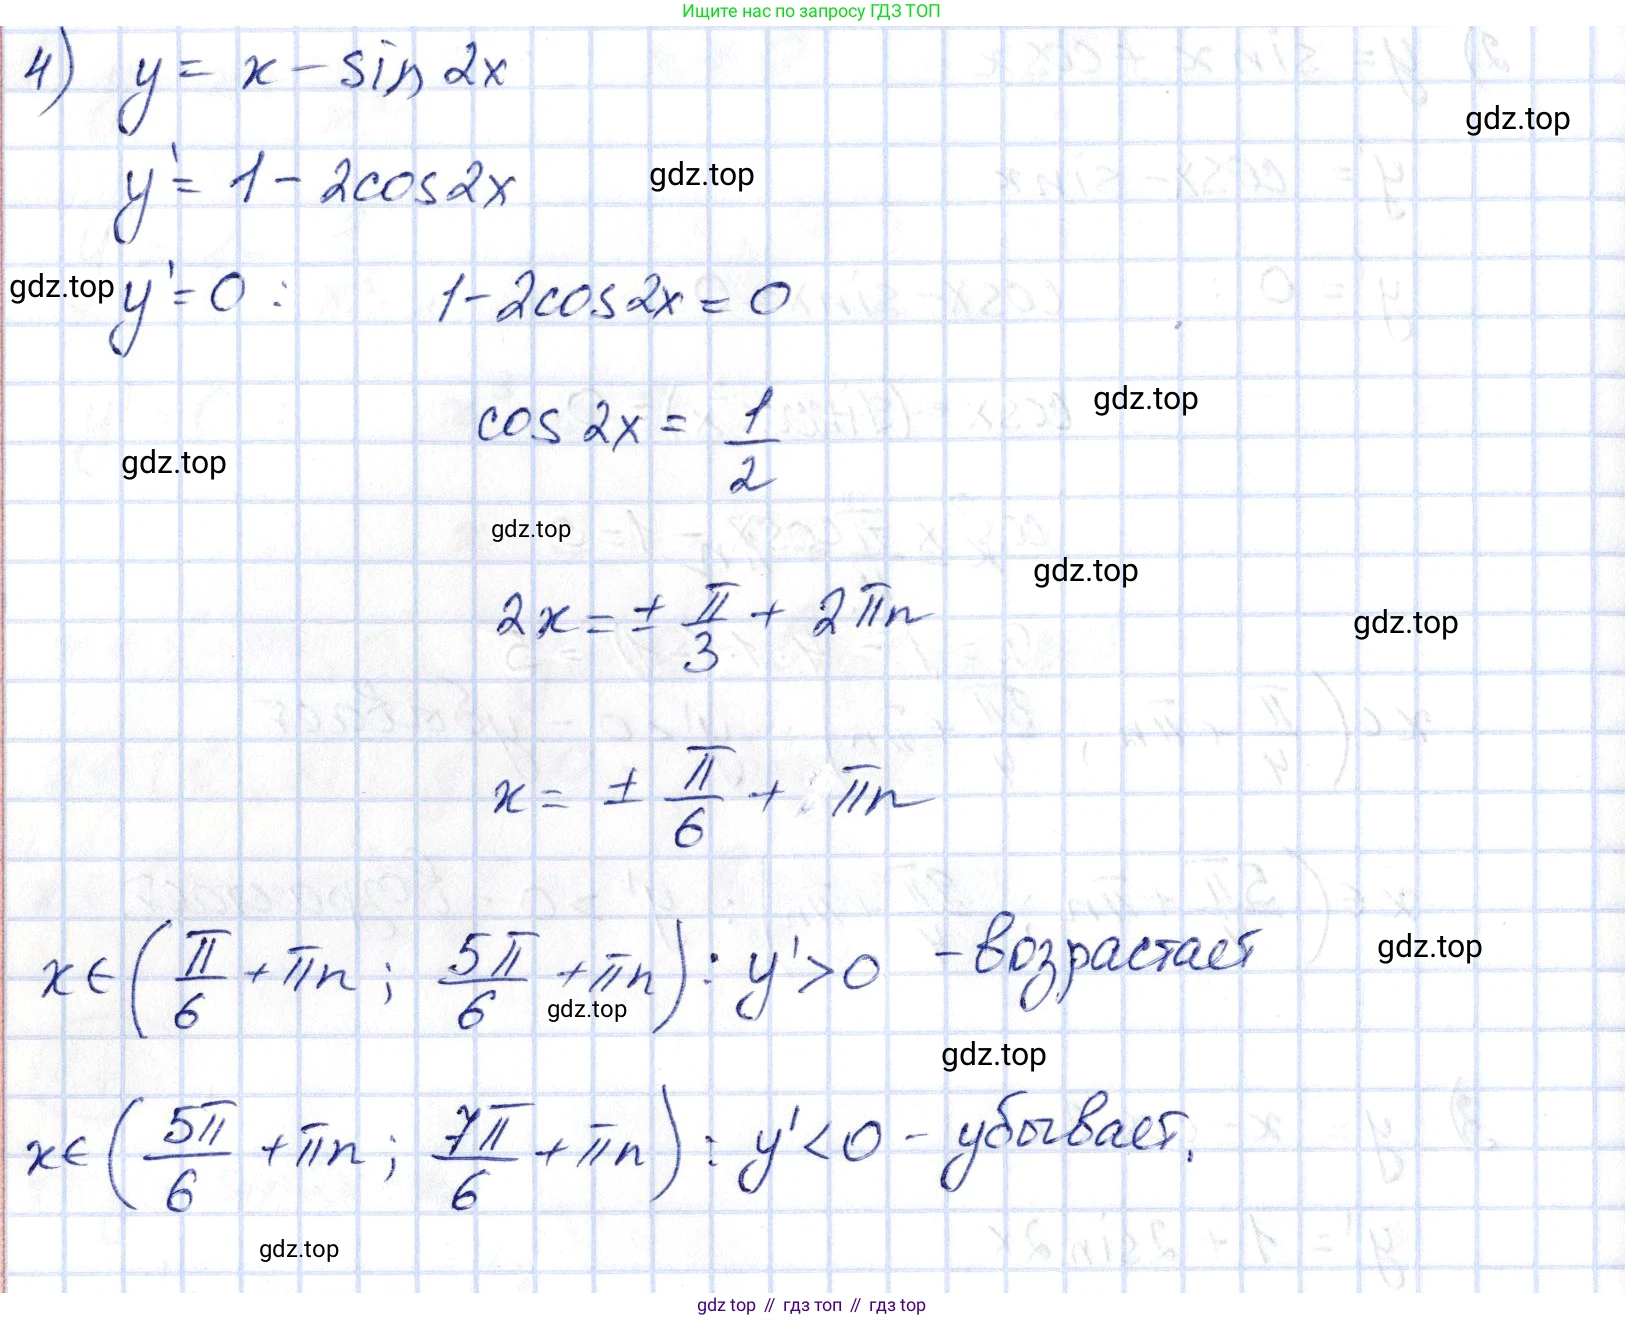 Ищите нас по запросу ГДЗ ТОП
4) y = x - sin 2x
gdz.top
y' = 1 - 2cos2x
gdz.top
gdz.top
y' = 0 : 1 - 2cos2x = 0
gdz.top
cos 2x = 1/2
gdz.top
gdz.top
gdz.top
2x = ± π/3 + 2πn
gdz.top
x = ± π/6 + πn
x ∈ (π/6 + πn ; 5π/6 + πn) : y' > 0 - возрастает
gdz.top
gdz.top
gdz.top
x ∈ (5π/6 + πn ; 7π/6 + πn) : y' < 0 - убывает.
gdz.top
gdz top // гдз топ // гдз top